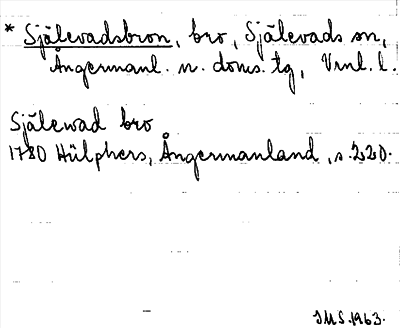 * Själevadsbron, bro, Själevads sn,
Ångermanl. n. doms. tg, Vnl. l.
Själewad bro
1780 Hülphers, Ångermanland, s. 220.
IMS. 1963.